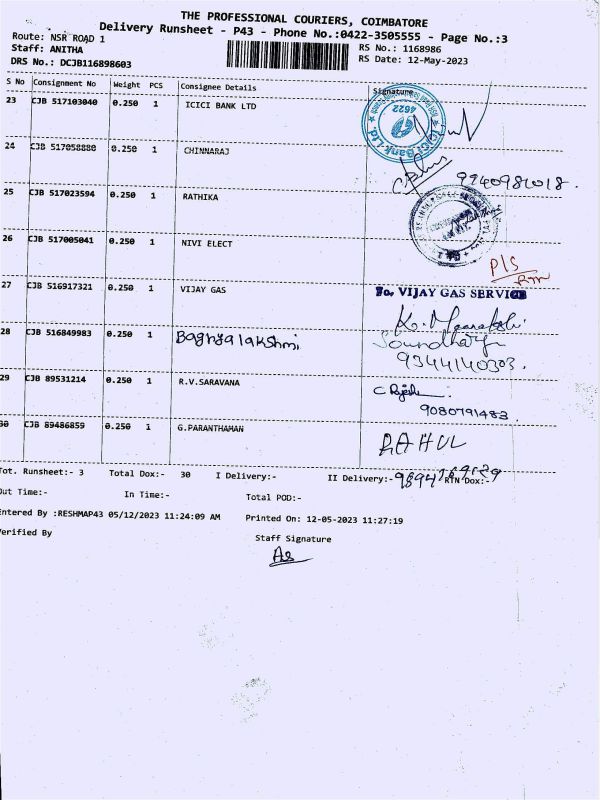 THE PROFESSIONAL COURIERS, COIMBATORE
Delivery Runsheet - P43 - Phone No.:0422-3505555 - Page No.:3
Route: NSR ROAD 1 RS No.: 1168986
Staff: ANITHA RS Date: 12-May-2023
DRS No.: DCJB116898603
S No Consignment No Weight PCS Consignee Details Signature
23 CJB 517103040 0.250 1 ICICI BANK LTD
ICICI Bank Ltd. 4622
24 CJB 517058880 0.250 1 CHINNARAJ 9940981018.
25 CJB 517023594 0.250 1 RATHIKA
26 CJB 517005041 0.250 1 NIVI ELECT P/S
27 CJB 516917321 0.250 1 VIJAY GAS For VIJAY GAS SERVICE
28 CJB 516849983 0.250 1 Bagngalakshmi Soundharya
9344140303.
29 CJB 89531214 0.250 1 R.V.SARAVANA C Rajesh
9080791483
30 CJB 89486859 0.250 1 G.PARANTHAMAN RAHUL
Tot. Runsheet:- 3 Total Dox:- 30 I Delivery:- II Delivery:- RTN Dox:-
9894769129
Out Time:- In Time:- Total POD:-
Entered By :RESHMAP43 05/12/2023 11:24:09 AM Printed On: 12-05-2023 11:27:19
Verified By Staff Signature
As